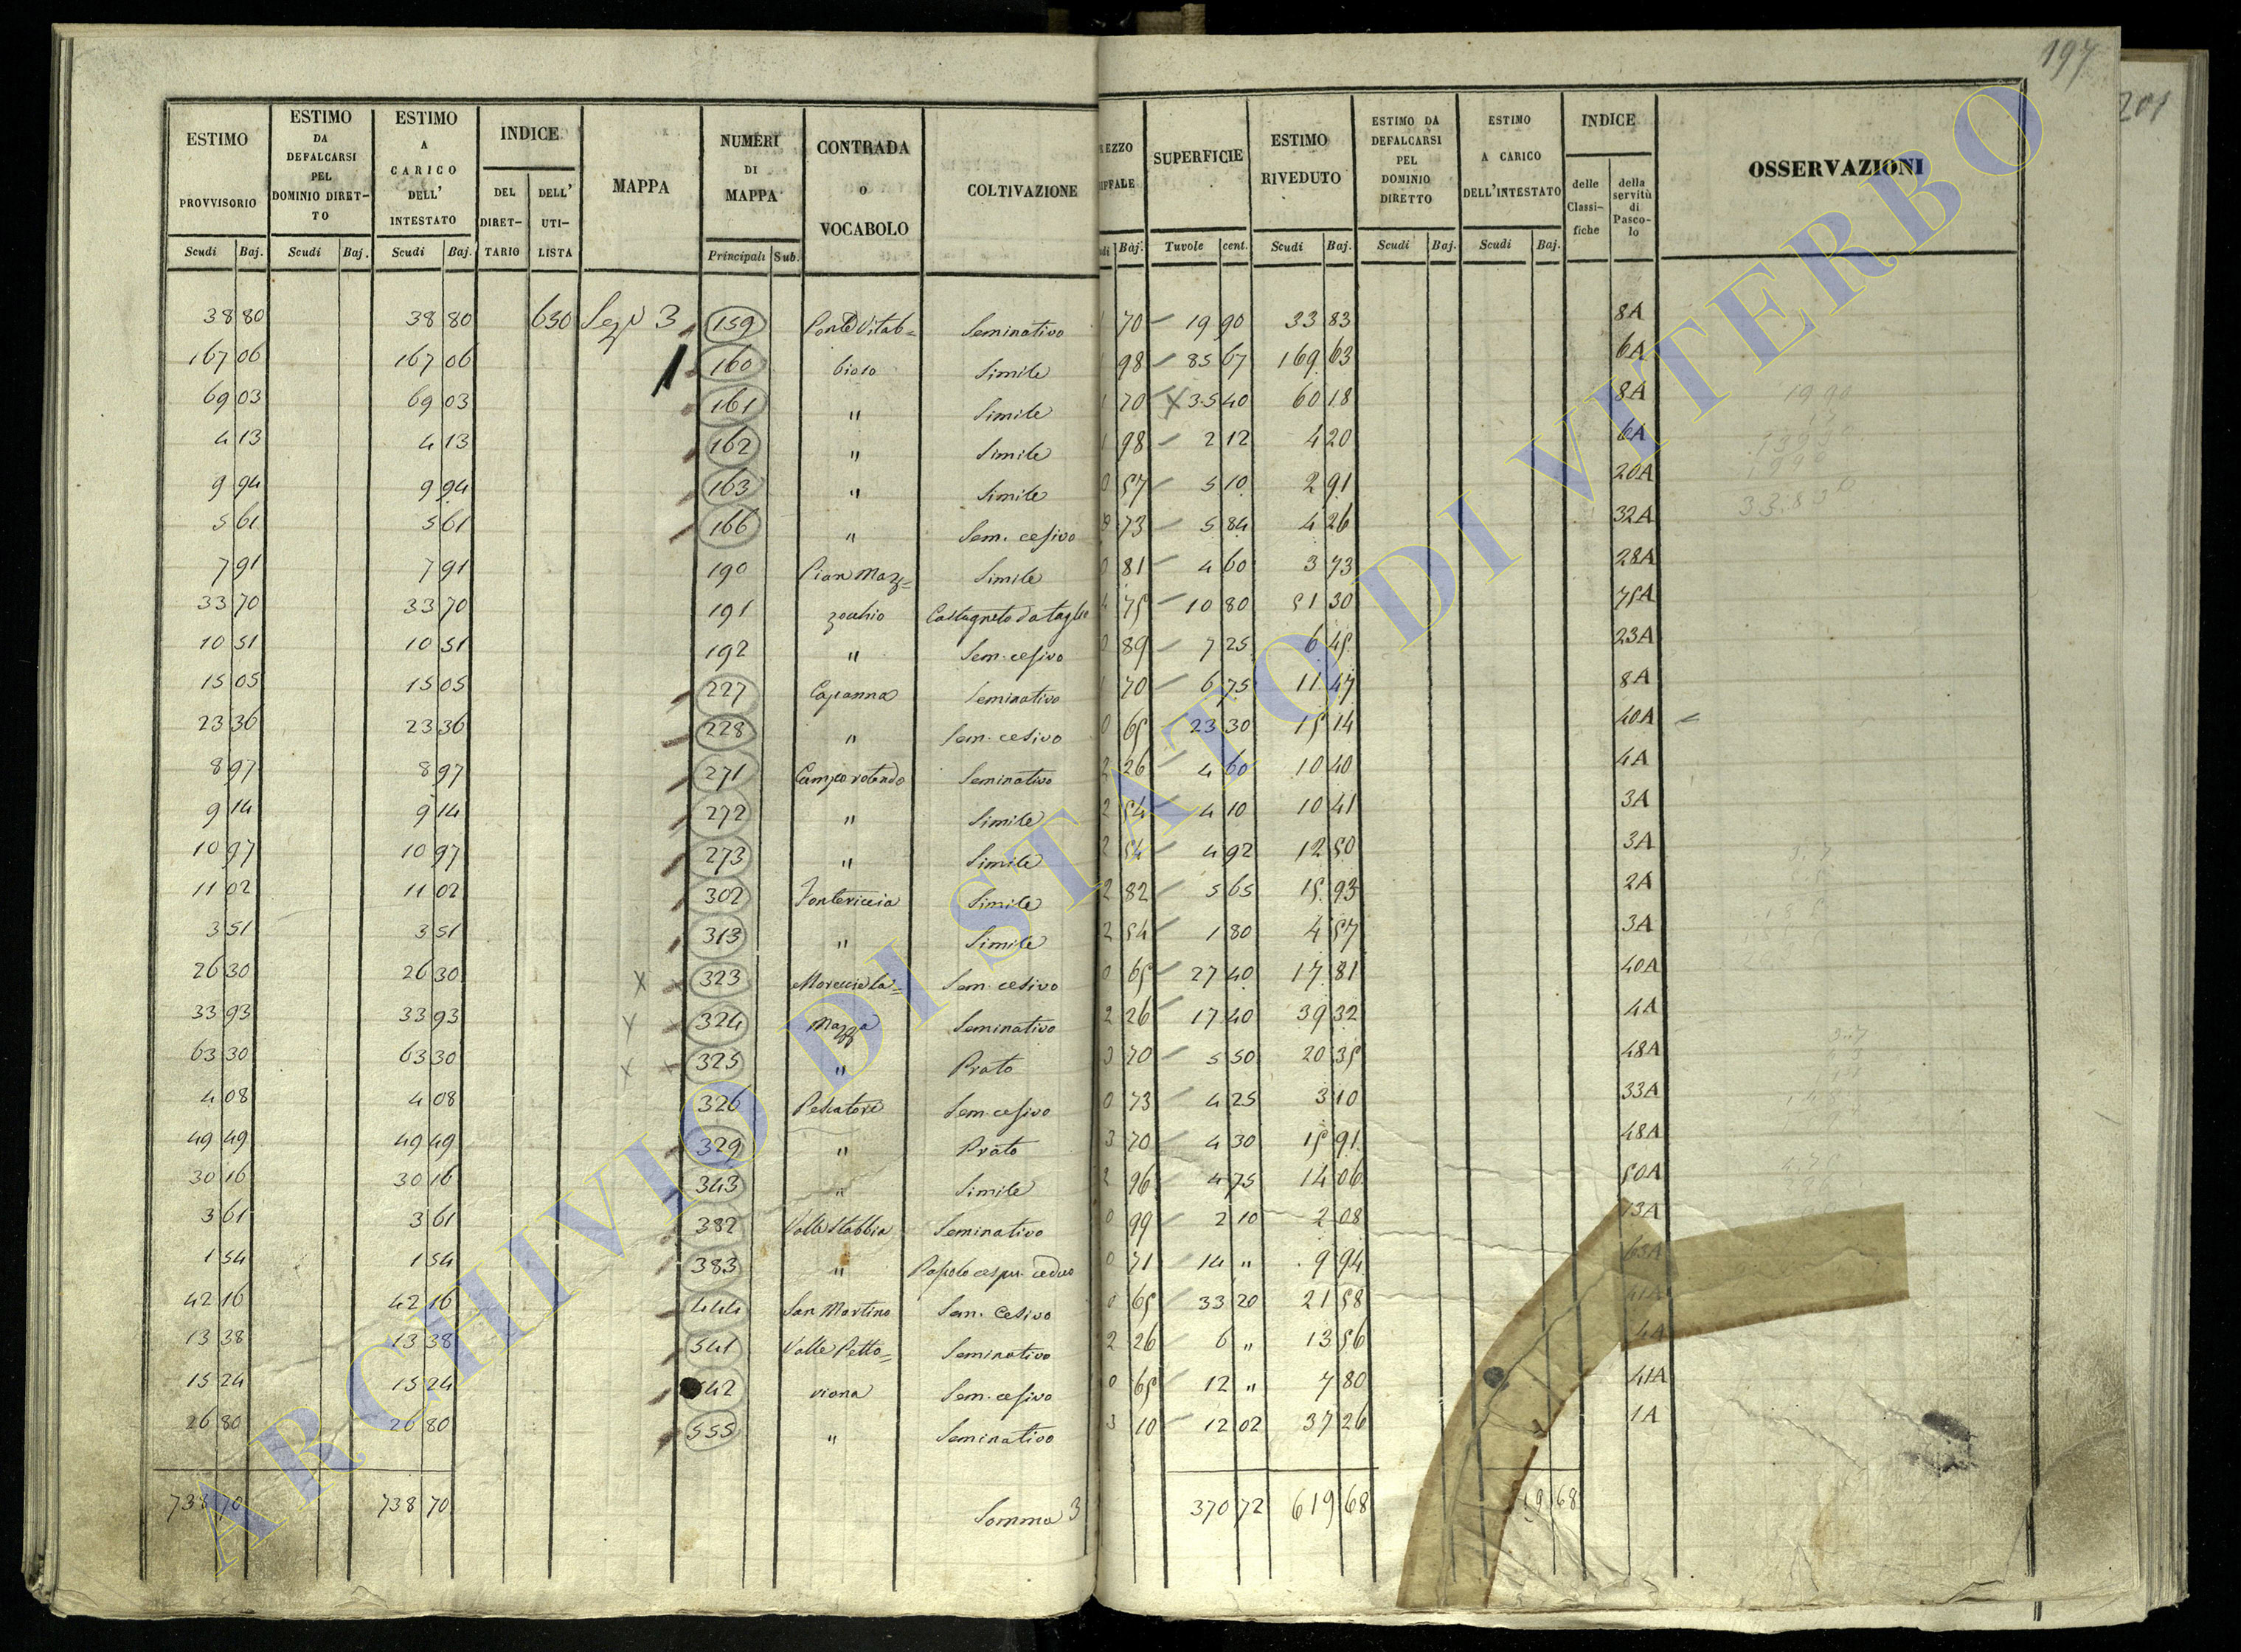 197
201
ESTIMO PROVVISORIO | ESTIMO DA DEFALCARSI PEL DOMINIO DIRETTO | ESTIMO A CARICO DELL' INTESTATO | INDICE | MAPPA | NUMERI DI MAPPA | CONTRADA O VOCABOLO | COLTIVAZIONE | SUPERFICIE | ESTIMO RIVEDUTO | ESTIMO DA DEFALCARSI PEL DOMINIO DIRETTO | ESTIMO A CARICO DELL'INTESTATO | INDICE | OSSERVAZIONI
DEL DIRETTARIO | DELL' UTILISTA | delle Classifiche | della servitù di Pascolo
Scudi | Baj. | Scudi | Baj. | Scudi | Baj. | Principali | Sub. | Baj. | Tavole | cent. | Scudi | Baj. | Scudi | Baj. | Scudi | Baj.
38 80 | 38 80 | 630 | 3 | 159 | Ponte Vitab= | Seminativo | 1 70 | 19 90 | 33 83 | 8A
167 06 | 167 06 | 160 | Simile | 1 98 | 85 67 | 169 63 | 6A
69 03 | 69 03 | 161 | " | Simile | 1 70 | 35 40 | 60 18 | 8A
4 13 | 4 13 | 162 | " | Simile | 1 98 | 2 12 | 4 20 | 6A
9 94 | 9 94 | 163 | " | Simile | 0 57 | 5 10 | 2 91 | 20A
5 61 | 5 61 | 166 | " | Sem. cesivo | 73 | 5 84 | 4 26 | 32A
7 91 | 7 91 | 190 | Pian Maz= | Simile | 0 81 | 4 60 | 3 73 | 28A
33 70 | 33 70 | 191 | zochio | Castagneto da taglio | 4 75 | 10 80 | 51 30 | 75A
10 51 | 10 51 | 192 | " | Sem. cesivo | 0 89 | 7 25 | 6 45 | 23A
15 05 | 15 05 | 227 | Capanna | Seminativo | 1 70 | 6 75 | 11 47 | 8A
23 36 | 23 36 | 228 | " | Sem. cesivo | 0 65 | 23 30 | 15 14 | 40A
8 97 | 8 97 | 271 | Camporotondo | Seminativo | 2 26 | 4 60 | 10 40 | 4A
9 14 | 9 14 | 272 | " | Simile | 2 54 | 4 10 | 10 41 | 3A
10 97 | 10 97 | 273 | " | Simile | 2 54 | 4 92 | 12 50 | 3A
11 02 | 11 02 | 302 | Simile | 2 82 | 5 65 | 15 93 | 2A
3 51 | 3 51 | 313 | " | Simile | 2 54 | 1 80 | 4 57 | 3A
26 30 | 26 30 | X | 323 | Sem. cesivo | 0 65 | 27 40 | 17 81 | 40A
33 93 | 33 93 | 324 | Mazza | Seminativo | 2 26 | 17 40 | 39 32 | 4A
63 30 | 63 30 | X | 325 | " | Prato | 3 70 | 5 50 | 20 35 | 48A
4 08 | 4 08 | 326 | Pescatore | Sem. cesivo | 0 73 | 4 25 | 3 10 | 33A
49 49 | 49 49 | 329 | " | Prato | 3 70 | 4 30 | 15 91 | 48A
30 16 | 30 16 | 343 | " | Simile | 2 96 | 4 75 | 14 06 | 50A
3 61 | 3 61 | 382 | Valle Stabbia | Seminativo | 0 99 | 2 10 | 2 08 | 13A
1 54 | 1 54 | 383 | " | Pascolo cespu. ceduo | 0 71 | 14 " | 9 94 | 63A
42 16 | 42 16 | 444 | San Martino | Sem. Cesivo | 0 65 | 33 20 | 21 58 | 41A
13 38 | 13 38 | 541 | Valle Petto= | Seminativo | 2 26 | 6 " | 13 56 | 4A
15 24 | 15 24 | 542 | riona | Sem. cesivo | 0 65 | 12 " | 7 80 | 41A
26 80 | 26 80 | 555 | " | Seminativo | 3 10 | 12 02 | 37 26 | 1A
738 70 | 738 70 | Somma 3 | 370 72 | 619 68 | 68
ARCHIVIO DI STATO DI VITERBO